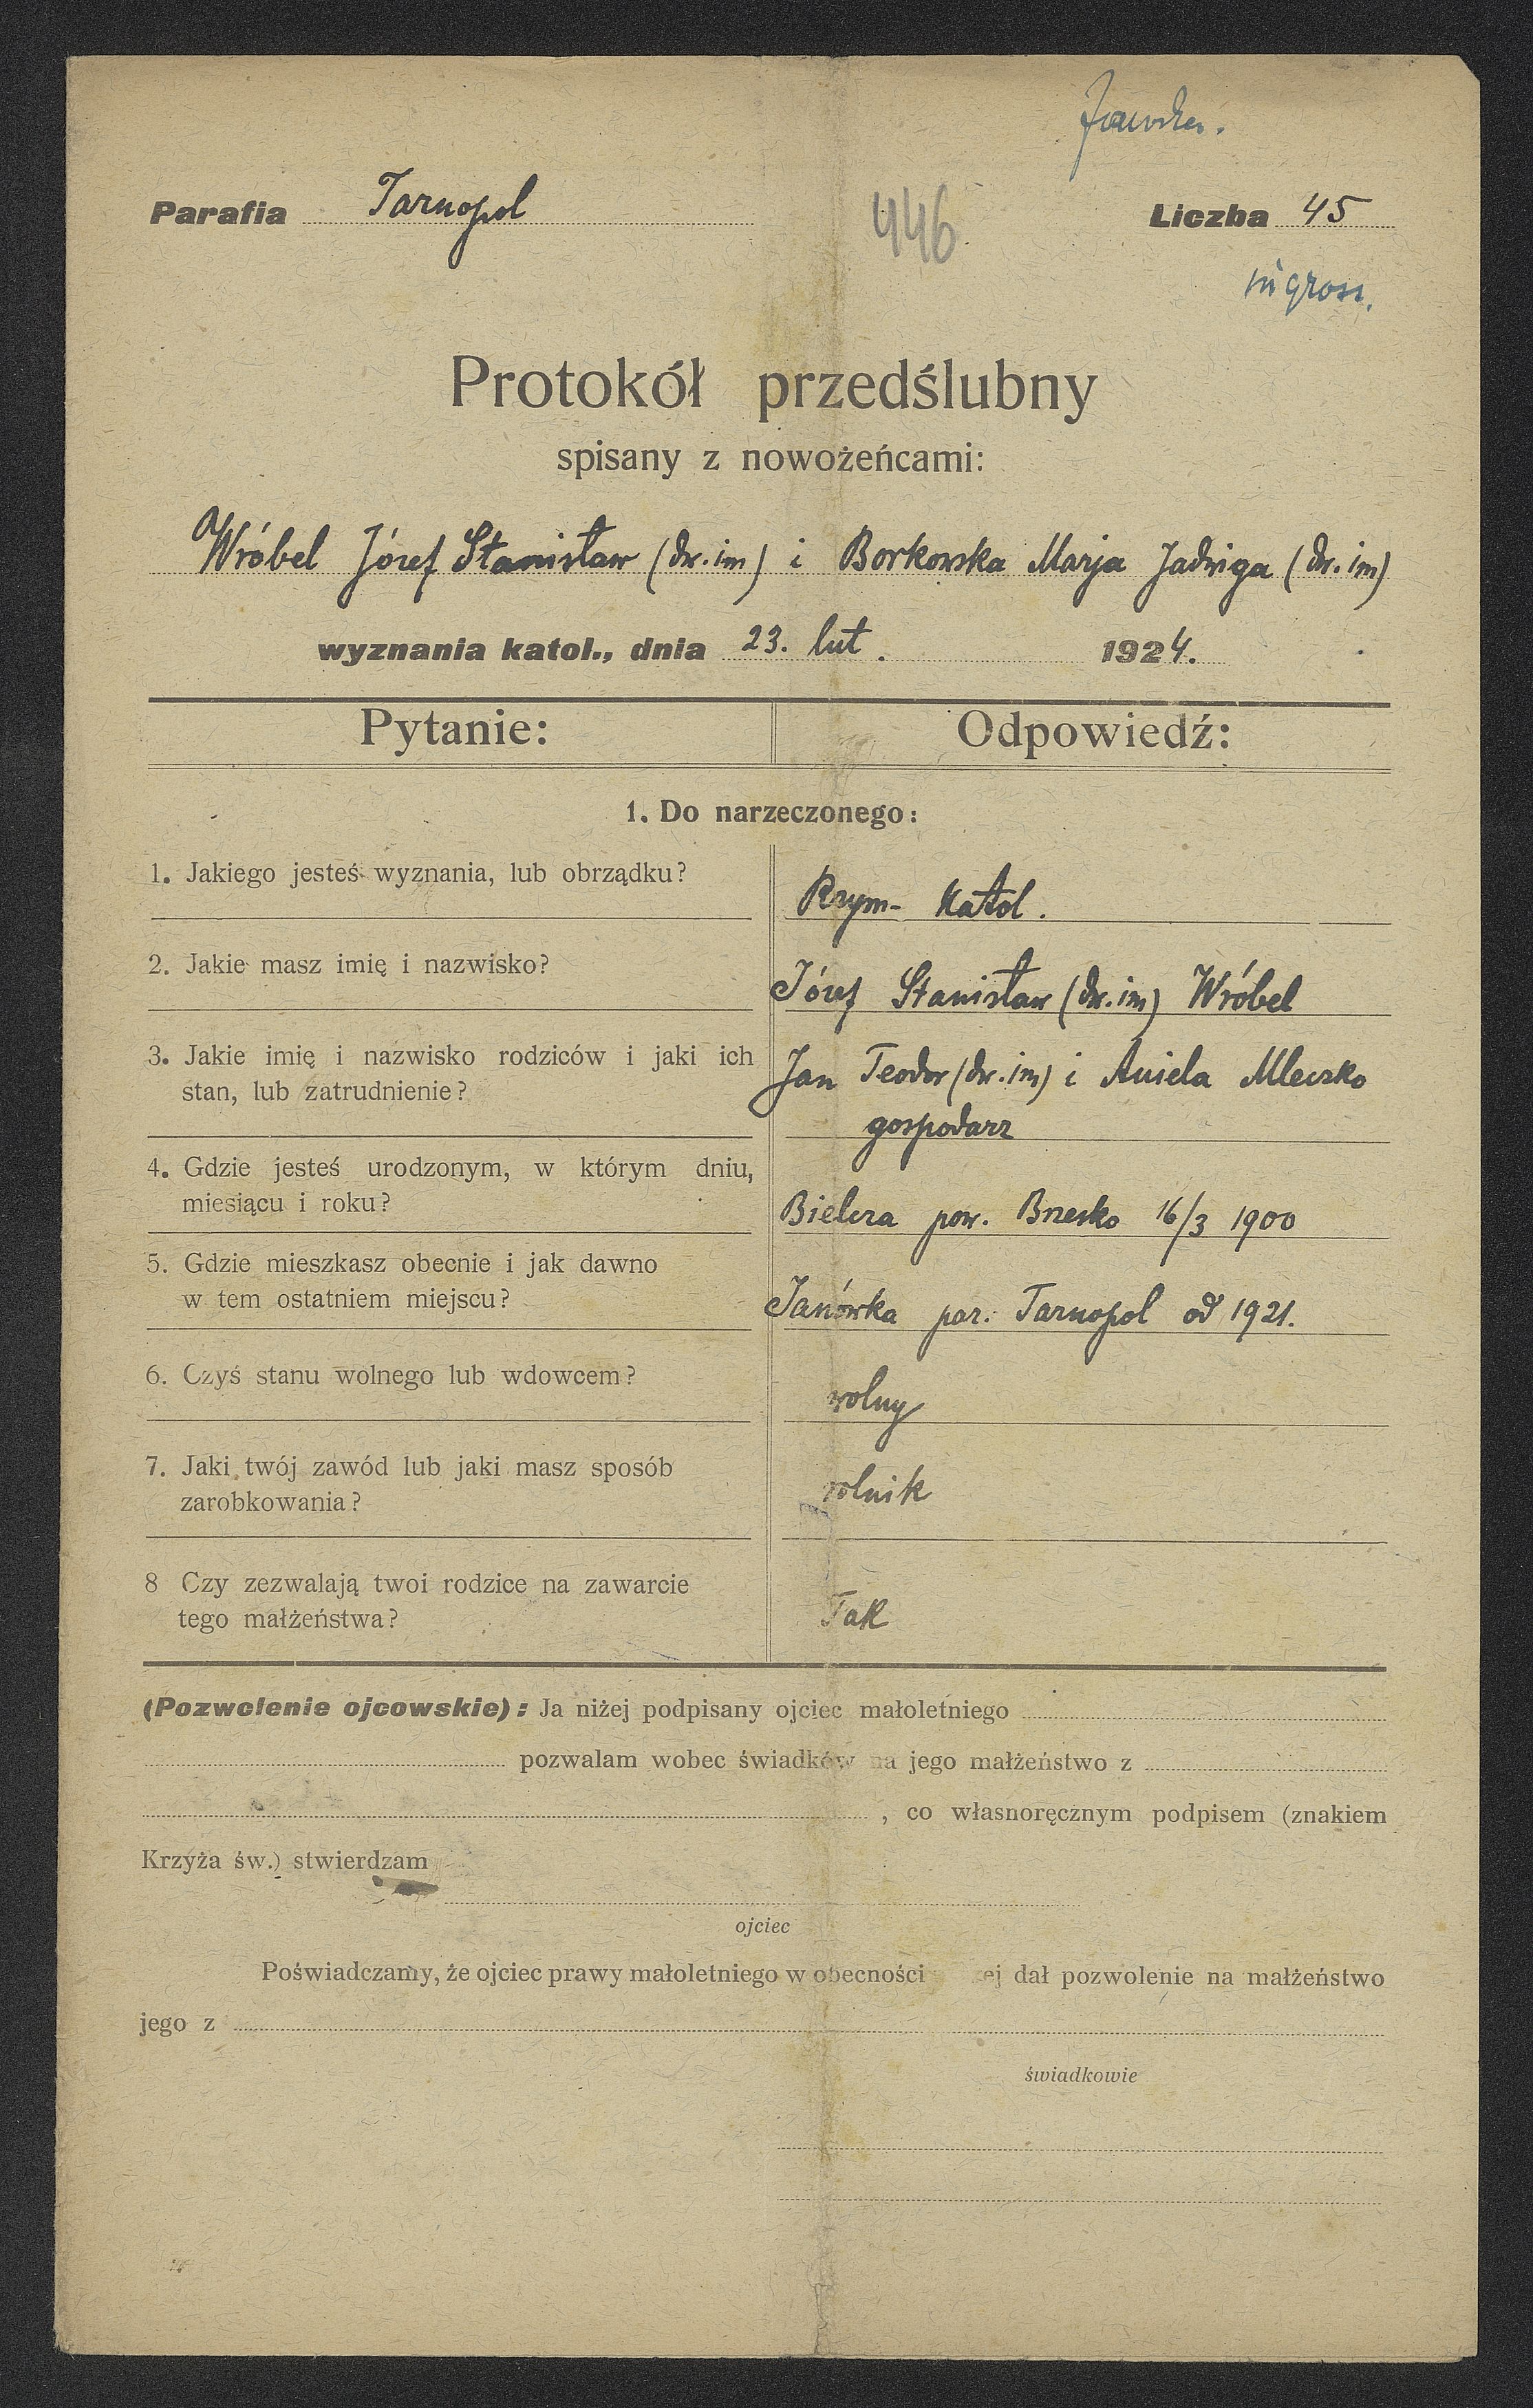 Parafia Tarnopol
446
Liczba 45
ingross.
Protokół przedślubny
spisany z nowożeńcami:
Wróbel Józef Stanisław (dw. im) i Borkowska Marja Jadwiga (dw. im)
wyznania katol., dnia 23. lut. 1924.
Pytanie: Odpowiedź:
1. Do narzeczonego:
1. Jakiego jesteś wyznania, lub obrządku?
Rzym- Katol.
2. Jakie masz imię i nazwisko?
Józef Stanisław (dw. im) Wróbel
3. Jakie imię i nazwisko rodziców i jaki ich
stan, lub zatrudnienie?
Jan Teodor (dw. im) i Aniela Mleczko
gospodarz
4. Gdzie jesteś urodzonym, w którym dniu,
miesiącu i roku?
Bielcza pow. Brzesko 16/3 1900
5. Gdzie mieszkasz obecnie i jak dawno
w tem ostatniem miejscu?
Janówka par. Tarnopol od 1921.
6. Czyś stanu wolnego lub wdowcem?
wolny
7. Jaki twój zawód lub jaki masz sposób
zarobkowania?
rolnik
8 Czy zezwalają twoi rodzice na zawarcie
tego małżeństwa?
Tak
(Pozwolenie ojcowskie): Ja niżej podpisany ojciec małoletniego
pozwalam wobec świadków na jego małżeństwo z
, co własnoręcznym podpisem (znakiem
Krzyża św.) stwierdzam
ojciec
Poświadczamy, że ojciec prawy małoletniego w obecności ej dał pozwolenie na małżeństwo
jego z
świadkowie